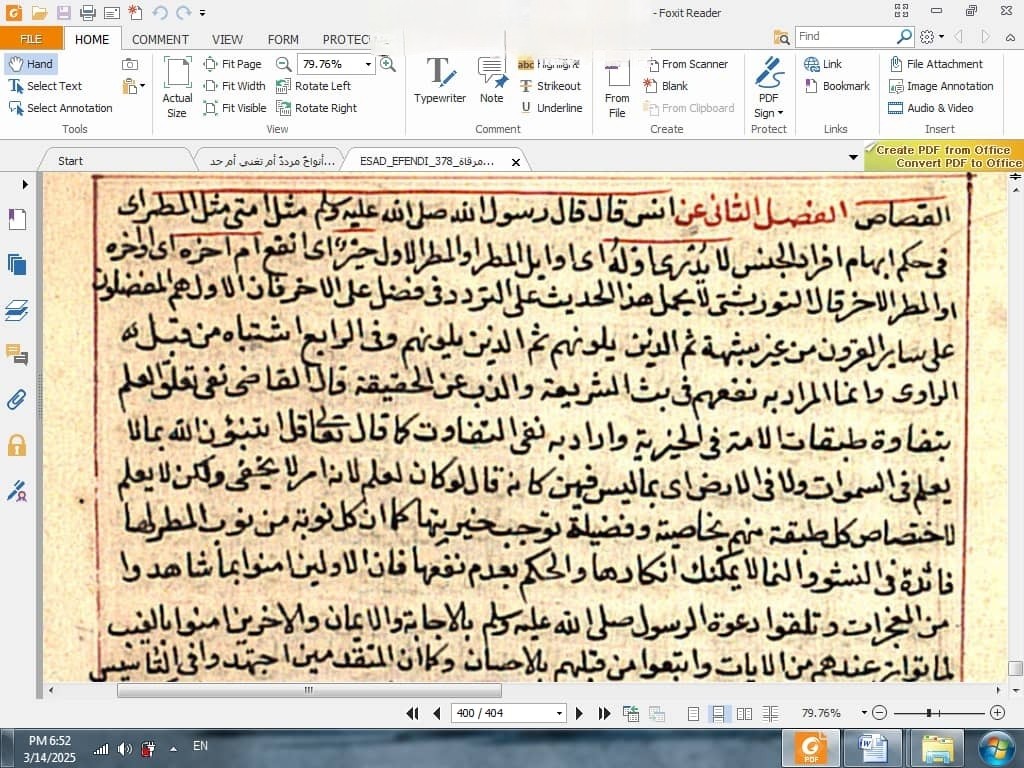 - Foxit Reader
FILE HOME COMMENT VIEW FORM PROTEC
Find
Hand
Select Text
Select Annotation
Tools
Actual Size
Fit Page
Fit Width
Fit Visible
79.76%
Rotate Left
Rotate Right
View
Typewriter
Note
Highlight
Strikeout
Underline
Comment
From File
From Scanner
Blank
From Clipboard
Create
PDF Sign
Protect
Link
Bookmark
Links
File Attachment
Image Annotation
Audio & Video
Insert
Start
أنواحٌ مرددٌ أم تغنى أم حد...
ESAD_EFENDI_378_مرقاة...
Create PDF from Office
Convert PDF to Office
القصاص الفصل الثانى عن انس قال قال رسول الله صلى الله عليه وسلم مثل امتى مثل المطر اى
فى حكم ابهام افراد الجنس لا يدرى اوله اى اوايل المطر او المطر الاول خير اى انفع ام اخره اى اواخره
او المطر الاخر قال التوربشتى لا يحمل هذا الحديث على التردد فى فضل على الاخر فان الاول هم المفضلون
على ساير القرون من غير شبهة ثم الذين يلونهم ثم الذين يلونهم وفى الرابع اشتباه من قبل
الراوى وانما المراد به نفعهم فى بث الشريعة والذب عن الحقيقة قال القاضى نفى تعلق العلم
بتفاوة طبقات الامة فى الخيرية واراد به نفى التفاوت كما قال تعالى قل اتنبؤن الله بما لا
يعلم فى السموات ولا فى الارض اى بما ليس فيهن كانه قال لو كان لعلم لانه امر لا يخفى ولكن لا يعلم
لاختصاص كل طبقة منهم بخاصية وفضيلة توجب خيريتها كما ان كل نوبة من نوب المطر لها
فائدة فى النشو والنما لا يمكنك انكارها والحكم بعدم نفعها فان الاولين امنوا بما شاهدوا
من المعجزات وتلقوا دعوة الرسول صلى الله عليه وسلم بالاجابة والايمان والاخرين امنوا بالغيب
لما تواتر عندهم من الايات واتبعوا من قبلهم بالاحسان وكما ان المتقدمين اجتهدوا فى التاسيس
400 / 404
79.76%
PM 6:52
3/14/2025
EN
PDF